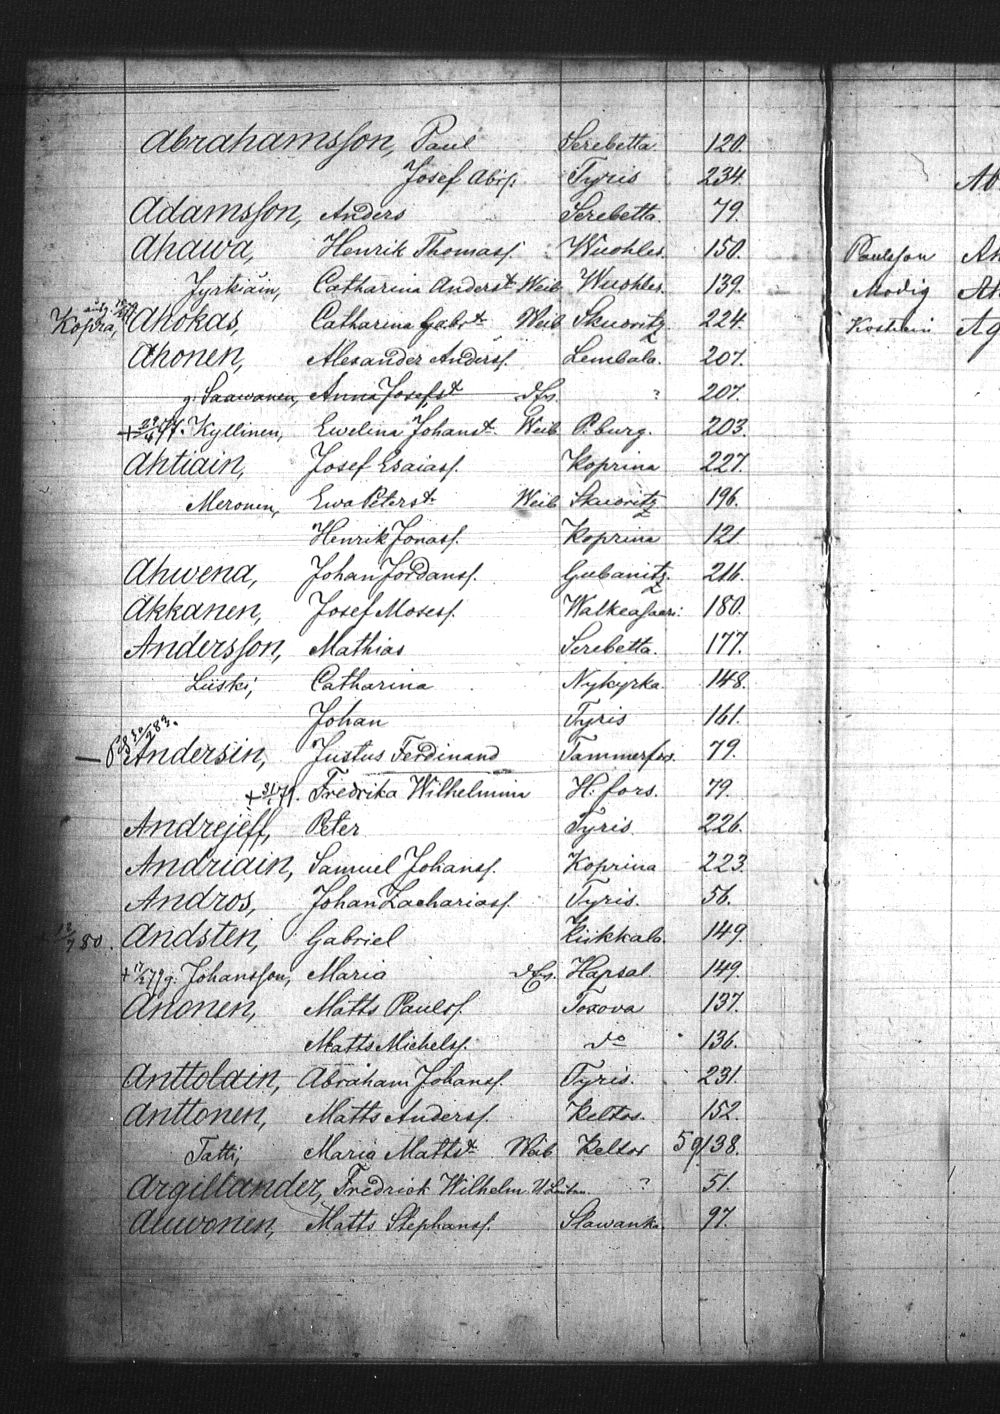 Abrahamsson, Paul Serebetta 120.
Josef Abrs: Tyris 234.
Adamsson, Anders Serebetta. 79.
Ahawa, Henrik Thomass. Wuohles. 150.
Jyrkiäin, Catharina Anderst Weib Wuohles. 139.
Kopra, Ahokas, Catharina Gabrt Weib Skuoritz 224.
Ahonen, Alexander Anderss. Lembala. 207.
g. Saawanen, Anna Josefst ? 207.
+ 29/4 77. Kyllinen, Ewelina Johanst. Weib P.burg. 203.
Ahtiain, Josef Esaiass. Koprina 227.
Meronen, Ewa Peterst Weib Skuoritz 196.
Henrik Jonass. Koprina 121.
Ahwena, Johan Jordanss. Gubanitz. 216.
Akkanen, Josef Mosess. Walkeasaari: 180.
Andersson, Mathias Serebetta. 177.
Liiski, Catharina Nykyrka. 148.
Johan Tyris 161.
Andersin, Justus Ferdinand Tammerfors. 79.
Fredrika Wilhelmina H:fors. 79.
Andrejeff, Peter Tyris. 226.
Andriain, Samuel Johanss. Koprina 223.
Andros, Johan Zachariass. Tyris. 56.
80. Andsten, Gabriel Kiikkala. 149.
g. Johansson, Maria Hapsal. 149.
Anonen, Matts Paulss. Toxova 137.
Matts Michelss. do 136.
Anttolain, Abraham Johanss. Tyris. 231.
Anttonen, Matts Anderss. Keltos. 152.
Tatti, Maria Mattst Weib Keltos 59/138.
Argillander, Fredrick Wilhelm ? 51.
Auwonen, Matts Stephanss. Slawanka. 97.
Ab
Paulsson Ah
Modig Ah